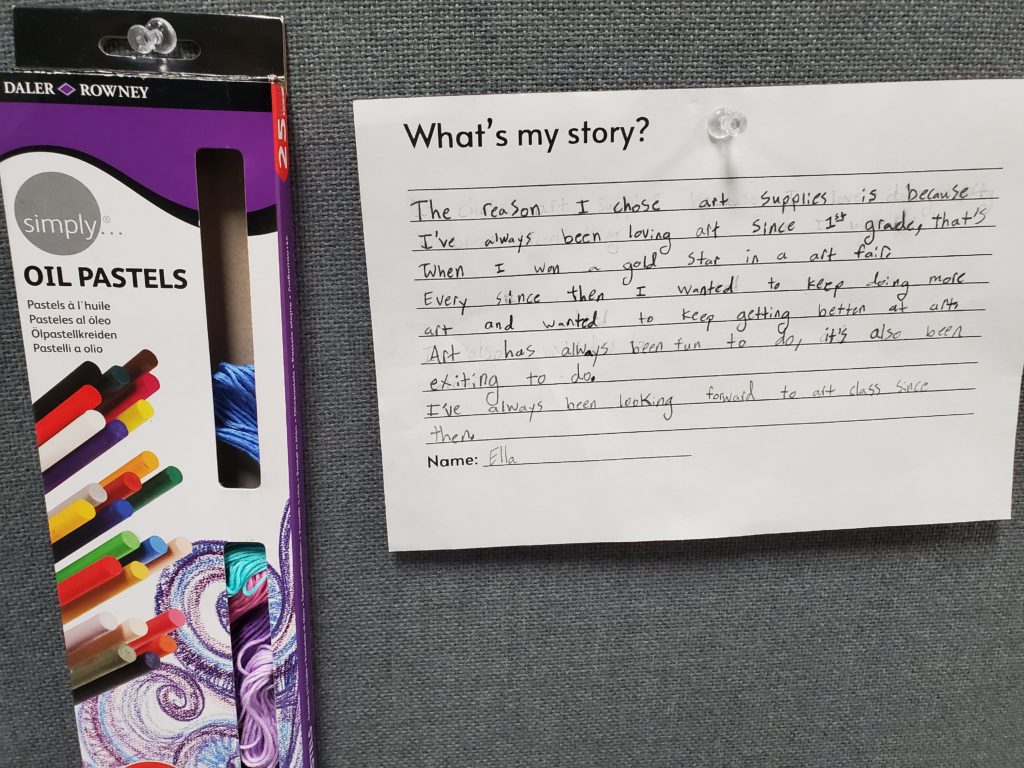 DALER ROWNEY
25
simply®...
OIL PASTELS
Pastels à l'huile
Pasteles al óleo
Ölpastellkreiden
Pastelli a olio
What's my story?
The reason I chose art supplies is because
I've always been loving art since 1st grade, that's
when I won a gold star in a art fair.
Every since then I wanted to keep doing more
art and wanted to keep getting better at art.
Art has always been fun to do, it's also been
exiting to do.
I've always been looking forward to art class since
then.
Name: Ella